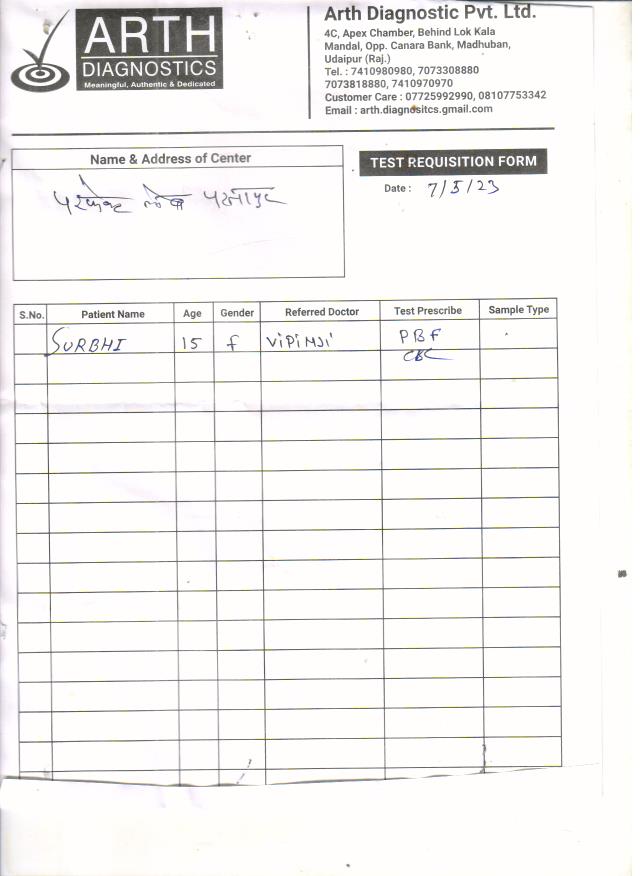 ARTH
DIAGNOSTICS
Meaningful, Authentic & Dedicated
Arth Diagnostic Pvt. Ltd.
4C, Apex Chamber, Behind Lok Kala
Mandal, Opp. Canara Bank, Madhuban,
Udaipur (Raj.)
Tel. : 7410980980, 7073308880
7073818880, 7410970970
Customer Care : 07725992990, 08107753342
Email : arth.diagnositcs.gmail.com
Name & Address of Center
परफेक्ट लैब
TEST REQUISITION FORM
Date : 7/5/23
S.No. Patient Name Age Gender Referred Doctor Test Prescribe Sample Type
SURBHI 15 f ViPiNJi PBF
CBC